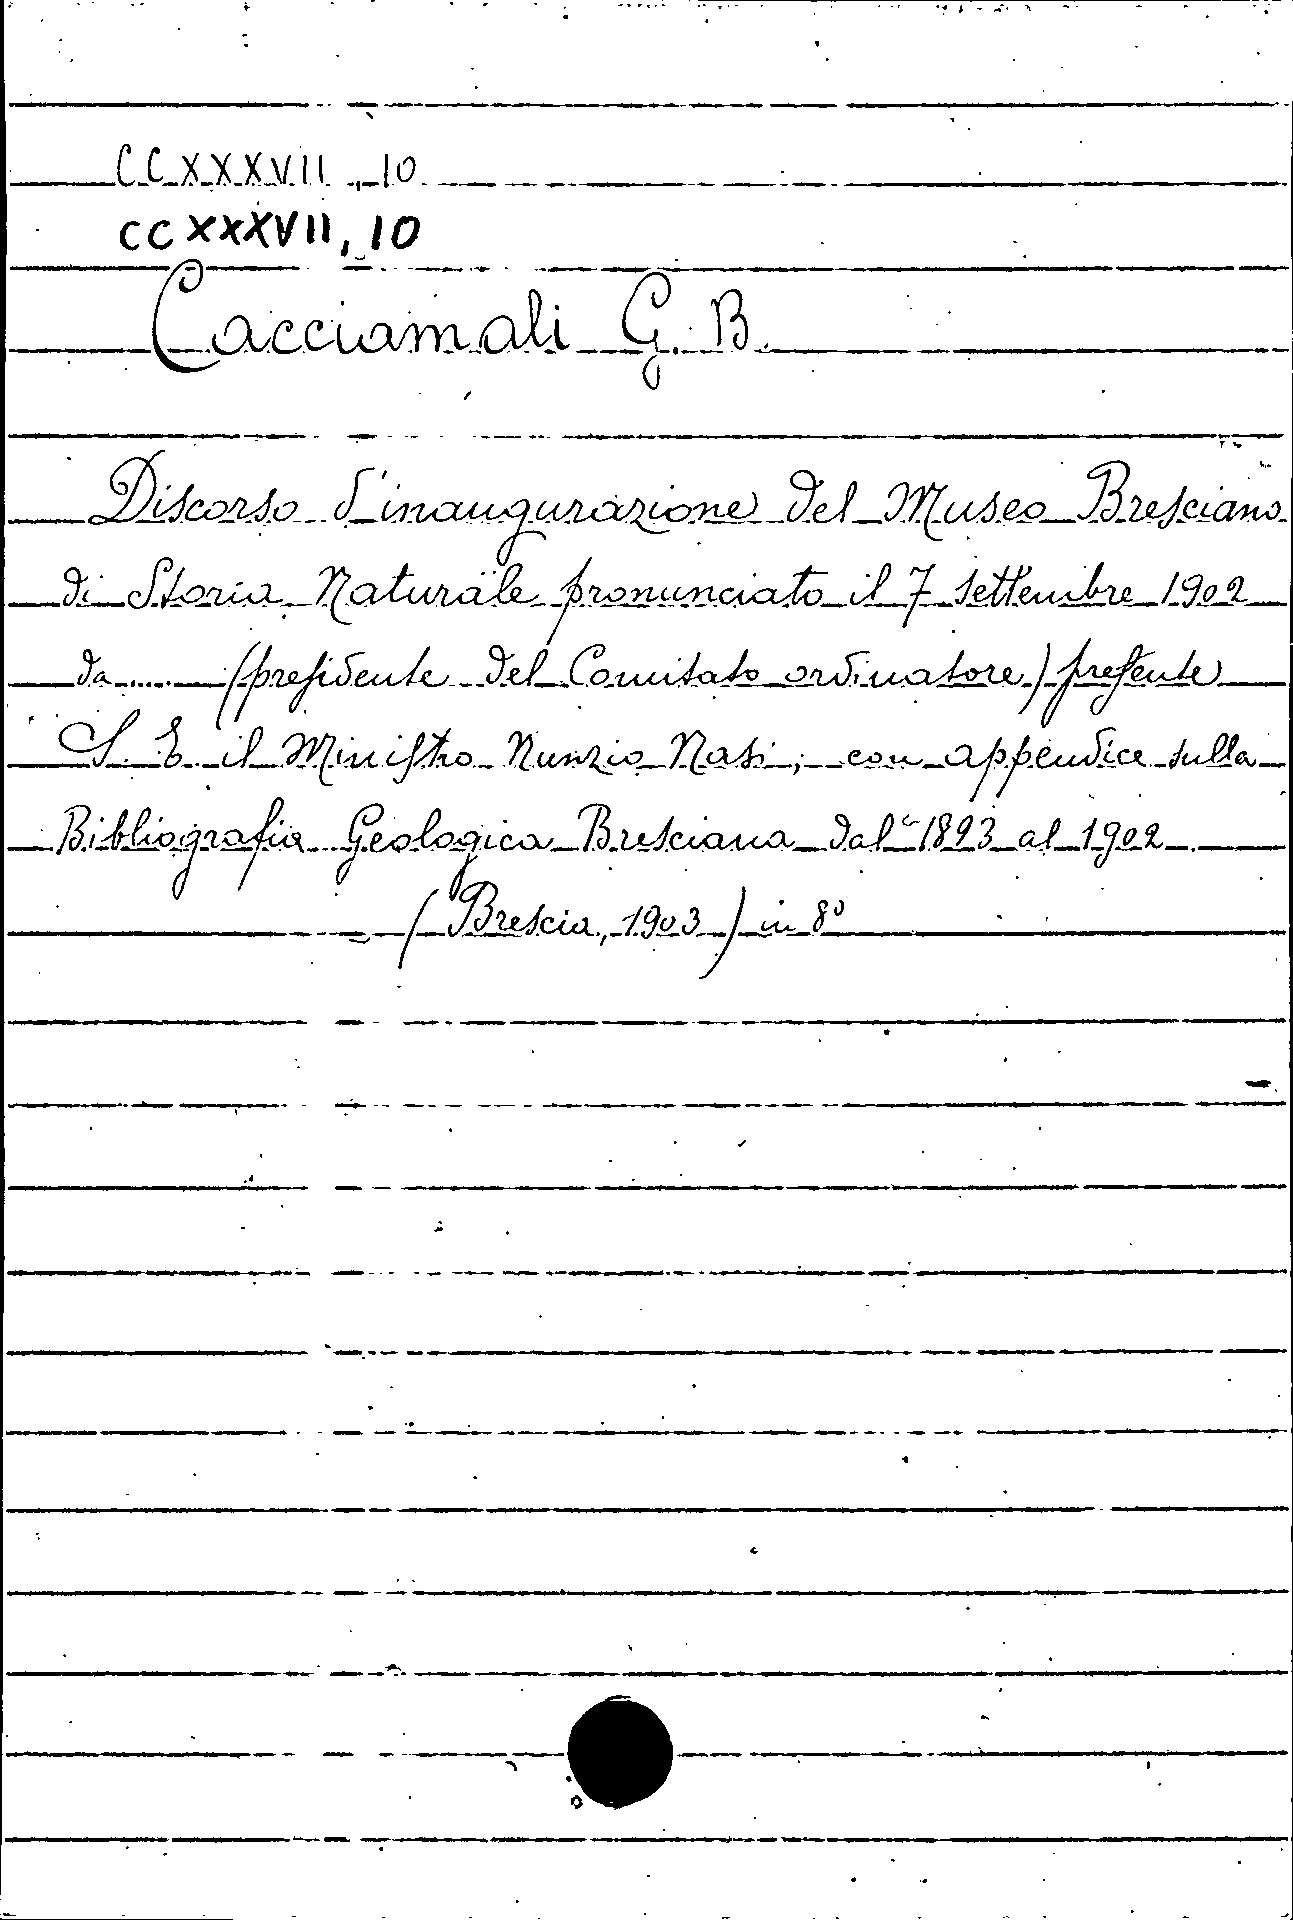 CCXXXVII, 10
CCXXXVII, 10
Cacciamali G. B.
Discorso d'inaugurazione del Museo Bresciano
di Storia Naturale pronunciato il 7 settembre 1902
da..... (presidente del Comitato ordinatore) presente
S. E. il Ministro Nunzio Nasi; con appendice sulla
Bibliografia Geologica Bresciana dal 1893 al 1902
(Brescia, 1903) in 8º